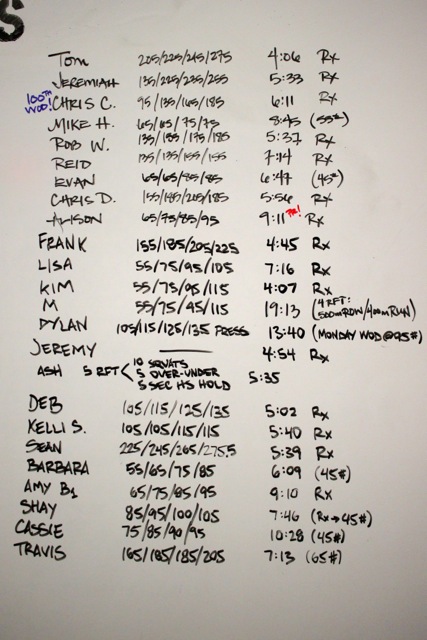 S
Tom 205/225/245/275 4:06 Rx
JEREMIAH 135/225/235/255 5:33 Rx
100TH WOD! CHRIS C. 95/135/165/185 6:11 Rx
MIKE H. 65/65/75/75 8:45 (55#)
ROB W. 135/155/175/185 5:37 Rx
REID 135/135/155/155 7:14 Rx
EVAN 65/65/85/85 6:47 (45#)
CHRIS D. 155/185/205/185 5:56 Rx
ALISON 65/75/85/95 9:11 PR! Rx
FRANK 155/185/205/225 4:45 Rx
LISA 55/75/95/105 7:16 Rx
KIM 55/75/95/115 4:07 Rx
M 55/75/95/115 19:13 (4 RFT: 500m ROW/400m RUN)
DYLAN 105/115/125/135 PRESS 13:40 (MONDAY WOD @ 95#)
JEREMY 4:54 Rx
ASH 5 RFT < 10 SQUATS
5 OVER-UNDER 5:35
5 SEC HS HOLD
DEB 105/115/125/135 5:02 Rx
KELLI S. 105/105/115/115 5:40 Rx
SEAN 225/245/265/275.5 5:39 Rx
BARBARA 55/65/75/85 6:09 (45#)
AMY B1 65/75/85/95 9:10 Rx
SHAY 85/95/100/105 7:46 (Rx→45#)
CASSIE 75/85/90/95 10:28 (45#)
TRAVIS 165/185/185/205 7:13 (65#)